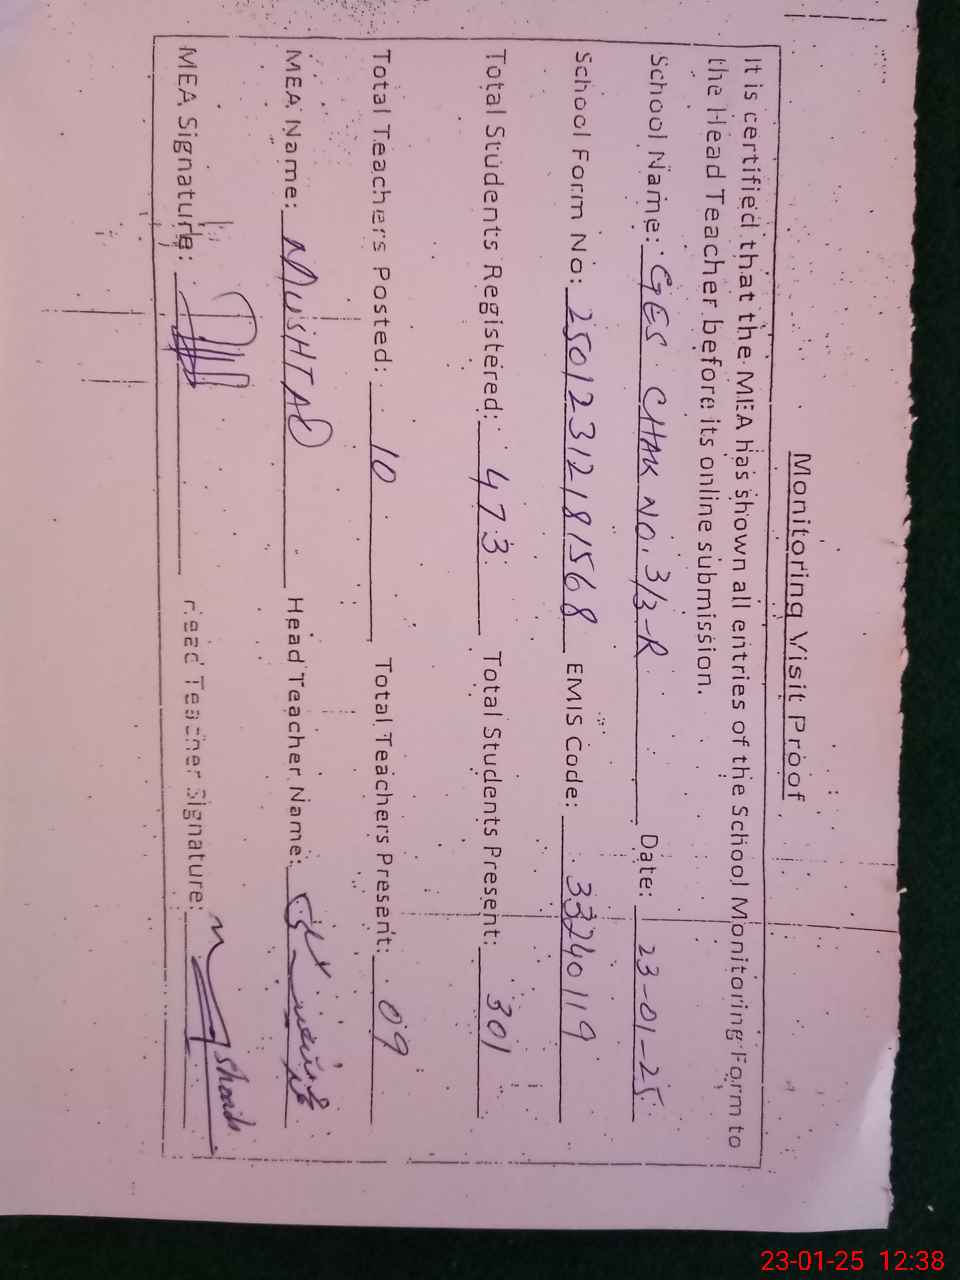 Monitoring Visit Proof
It is certified that the MEA has shown all entries of the School Monitoring Form to
the Head Teacher before its online submission.
School Name: GES CHAK NO. 3/3-R Date: 23-01-25
School Form No: 2501231218 1568 EMIS Code: 33240119
Total Students Registered: 473 Total Students Present: 301
Total Teachers Posted: 10 Total Teachers Present: 09
MEA Name: MUSHTAQ Head Teacher Name:
MEA Signature: Head Teacher Signature:
23-01-25 12:38